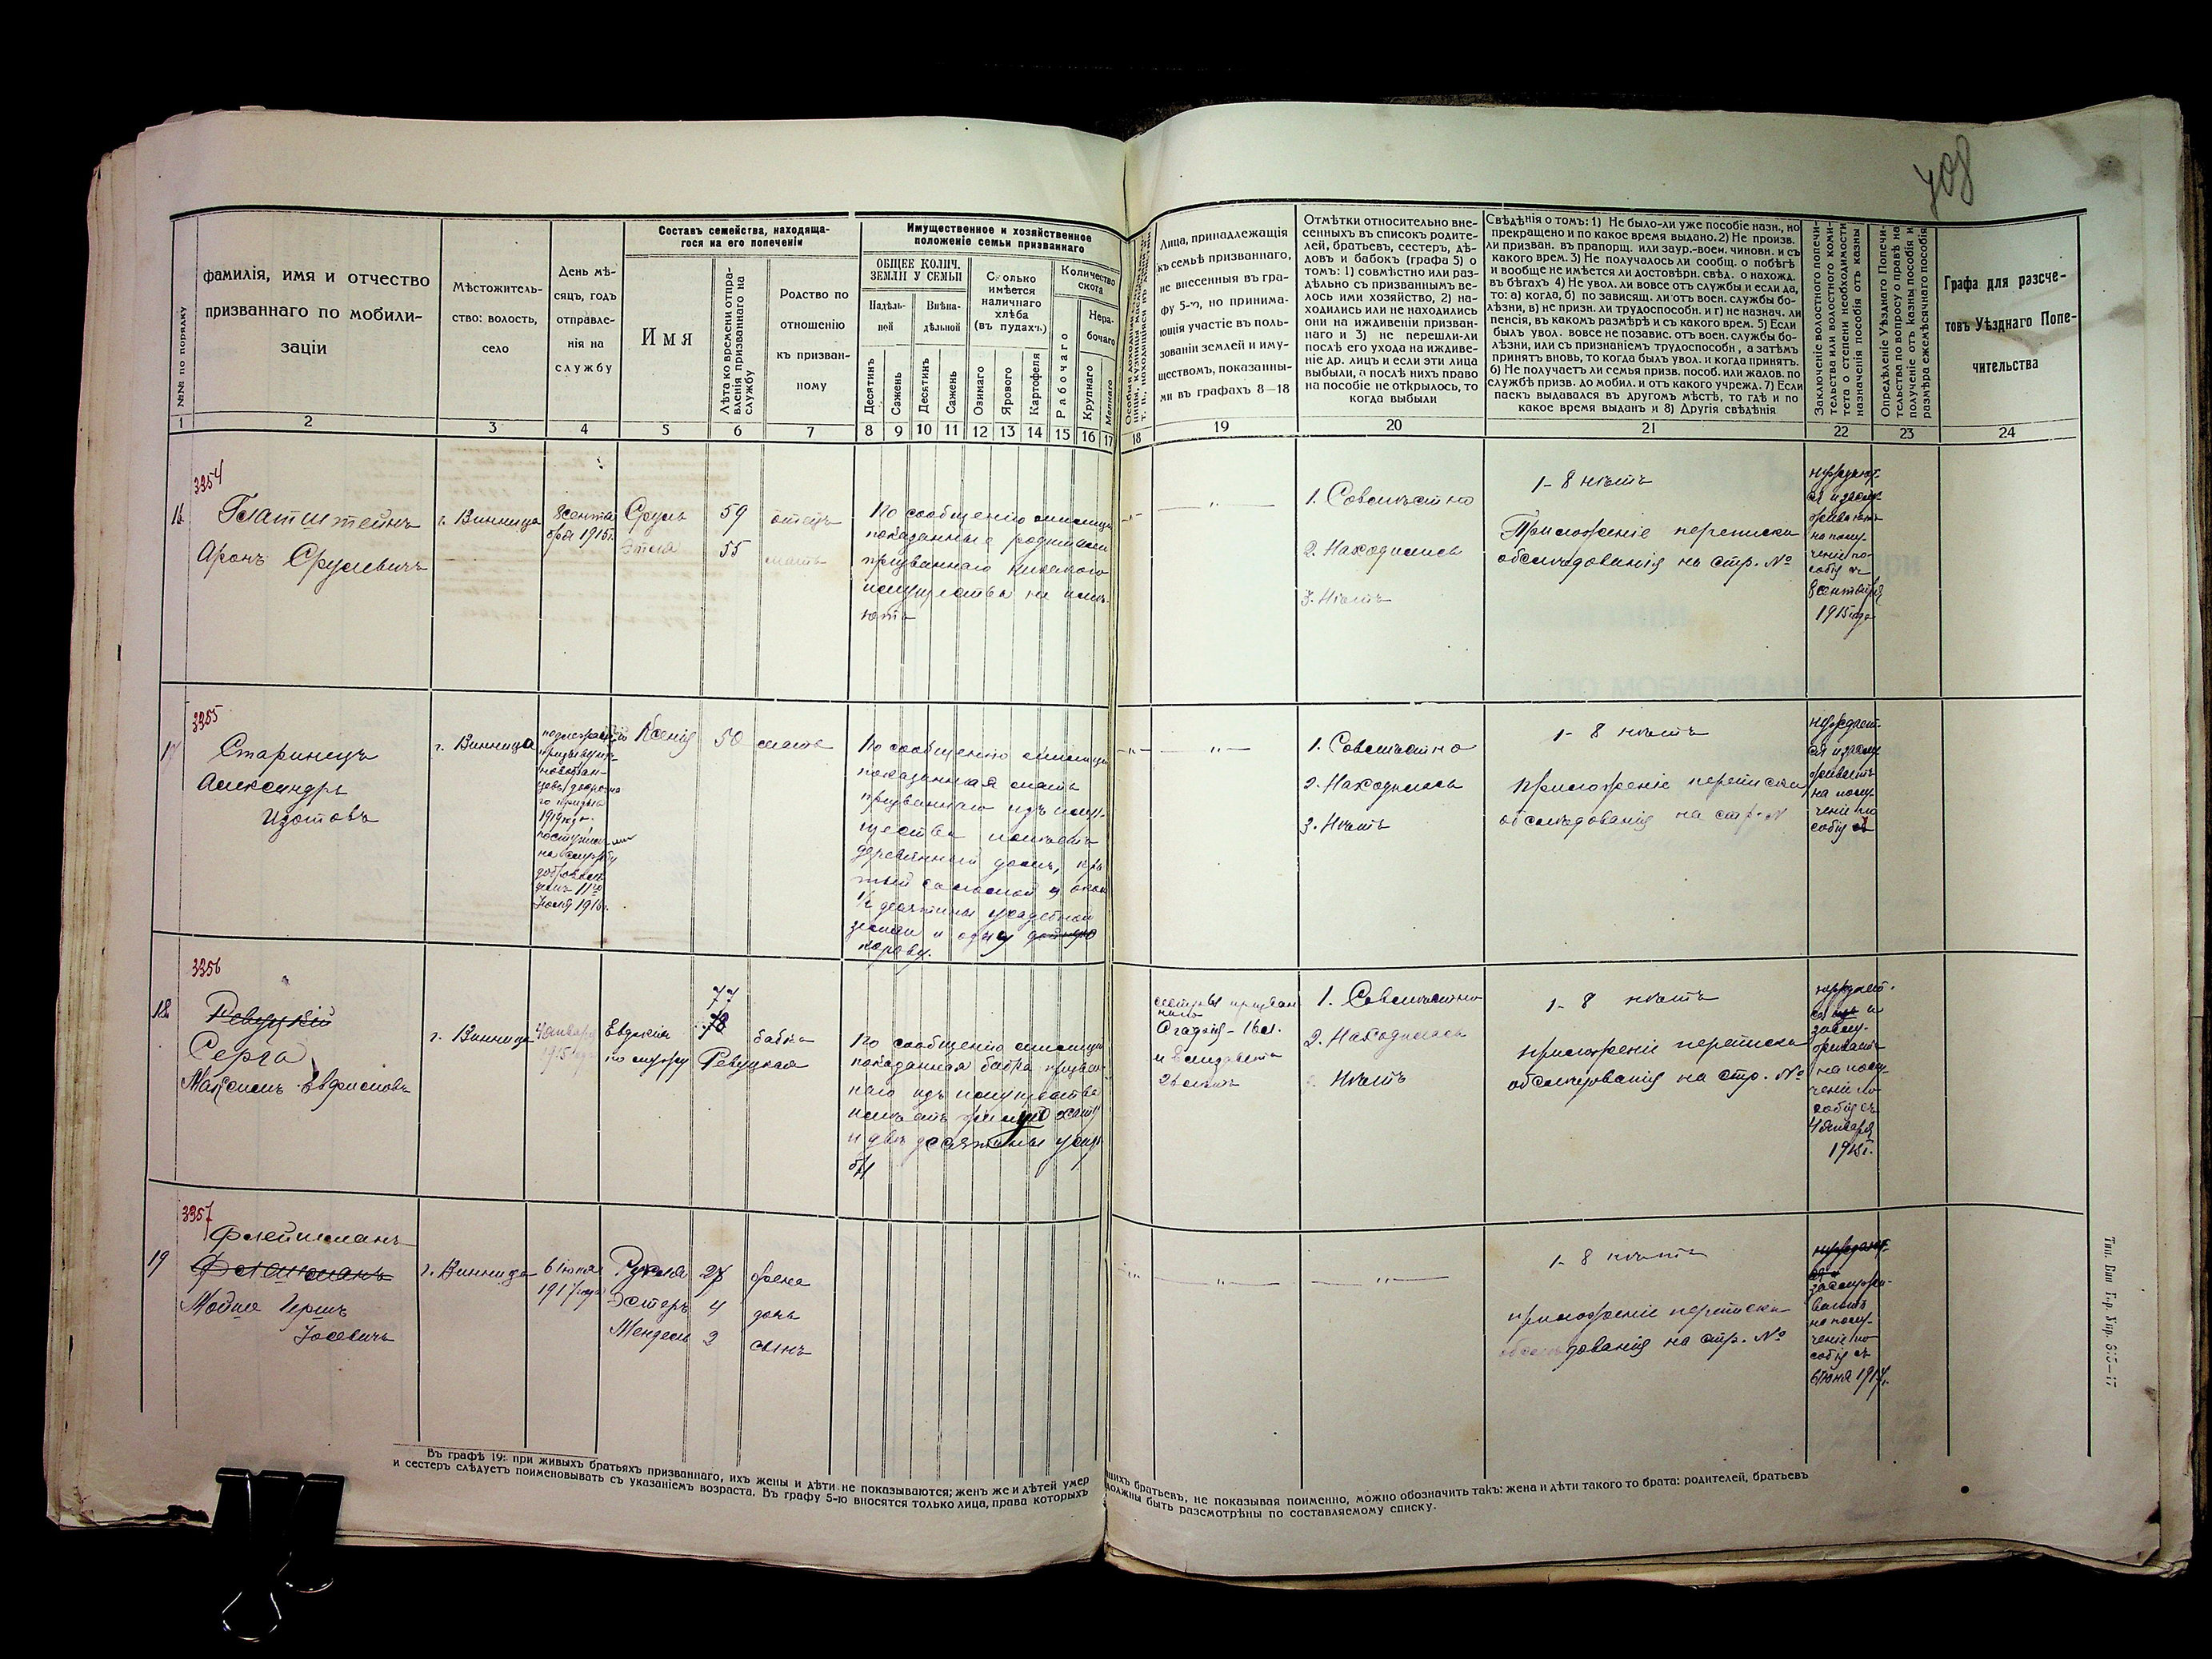 408
№№ по порядку
фамилія, имя и отчество
призваннаго по мобили-
заціи
Мѣстожитель-
ство: волость,
село
День мѣ-
сяцъ, годъ
отправле-
нія на
службу
Составъ семейства, находяща-
гося на его попеченіи
Имя
Лѣта ко времени отпра-
вленія призваннаго на
службу
Родство по
отношенію
къ призван-
ному
Имущественное и хозяйственное
положеніе семьи призваннаго
ОБЩЕЕ КОЛИЧ.
ЗЕМЛИ У СЕМЬИ
Надѣль-
ной
Внѣна-
дѣльной
Десятинъ
Сажень
Десятинъ
Сажень
Сколько
имѣется
наличнаго
хлѣба
(въ пудахъ.)
Озимаго
Ярового
Картофеля
Количество
скота
Рабочаго
Нера-
бочаго
Крупнаго
Мелкаго
Лица, принадлежащія
къ семьѣ призваннаго,
не внесенныя въ гра-
фу 5-ю, но принима-
ющія участіе въ поль-
зованіи землей и иму-
ществомъ, показанны-
ми въ графахъ 8—18
Отмѣтки относительно вне-
сенныхъ въ списокъ родите-
лей, братьевъ, сестеръ, дѣ-
довъ и бабокъ (графа 5) о
томъ: 1) совмѣстно или раз-
дѣльно съ призваннымъ ве-
лось ими хозяйство, 2) на-
ходились или не находились
они на иждивеніи призван-
наго и 3) не перешли-ли
послѣ его ухода на иждиве-
ніе др. лицъ и если эти лица
выбыли, а послѣ нихъ право
на пособіе не открылось, то
когда выбыли
Свѣдѣнія о томъ: 1) Не было-ли уже пособіе назн., но
прекращено и по какое время выдано. 2) Не произв.
ли призван. въ прапорщ. или заур.-воен. чиновн. и съ
какого врем. 3) Не получалось ли сообщ. о побѣгѣ
и вообще не имѣется ли достовѣрн. свѣд. о нахожд.
въ бѣгахъ 4) Не увол. ли вовсе отъ службы и если да,
то: а) когда, б) по зависящ. ли отъ воен. службы бо-
лѣзни, в) не призн. ли трудоспособн. и г) не назнач. ли
пенсія, въ какомъ размѣрѣ и съ какого врем. 5) Если
былъ увол. вовсе не позавис. отъ воен. службы бо-
лѣзни, или съ признаніемъ трудоспособн., а затѣмъ
принятъ вновь, то когда былъ увол. и когда принятъ.
6) Не получаетъ ли семья призв. пособ. или жалов. по
службѣ призв. до мобил. и отъ какого учрежд. 7) Если
паекъ выдавался въ другомъ мѣстѣ, то гдѣ и по
какое время выданъ и 8) Другія свѣдѣнія
Заключеніе волостного попечи-
тельства или волостного коми-
тета о степени необходимости
назначенія пособія отъ казны
Опредѣленіе Уѣзднаго Попечи-
тельства по вопросу о правѣ на
полученіе отъ казны пособія и
размѣра ежемѣсячнаго пособія
Графа для разсче-
товъ Уѣзднаго Попе-
чительства
1 2 3 4 5 6 7 8 9 10 11 12 13 14 15 16 17 18 19 20 21 22 23 24
3354
16
Блатштейнъ
Аронъ Срулевичъ
г. Винница
8 сентя
бря 1915 г.
Сруль 59 отецъ
Этля 55 мать
По сообщенію милиціи
показанные родители
призваннаго никакого
имущества не имѣ-
ютъ
1. Совмѣстно
2. Находились
3. Нѣтъ
1- 8 нѣтъ
Приложеніе переписки
обслѣдованія на стр. №
нуждают-
ся и заслу-
живаютъ
на полу-
ченіе по-
собія съ
8 сентября
1915 года
3355
17
Старинецъ
Александръ
Изотовъ
г. Винница
1919 года
на службу
Іюля 1916 г.
Ксенія 50 мать
По сообщенію милиціи
показанная мать
призваннаго изъ иму-
щества имѣетъ
деревянный домъ, кры-
тый соломой и около
1/2 десятины усадебной
земли и одну
корову.
1. Совмѣстно
2. Находилась
3. Нѣтъ
1- 8 нѣтъ
Приложеніе переписки
обслѣдованія на стр. №
нуждает-
ся и заслу-
живаетъ
на полу-
ченіе по
собія съ
3356
18
Ревуцкій
Серга
Максимъ Евфимовъ
г. Винница
4 января
1915 года
77
78
Евдокія бабка
по мужу Ревуцкая
По сообщенію милиціи
показанная бабка призван-
наго изъ имущества
имѣетъ жилую хату
и двѣ десятины усадь
бы
сестры призван
наго
1. Совмѣстно
2. Находилась
3. Нѣтъ
1- 8 нѣтъ
приложеніе переписки
обслѣдованія на стр. №
нуждает-
ся и
заслу-
живаетъ
на полу-
ченіе по
собія съ
4 января
1915 г.
3357
19
Флейшманъ
Флашманъ
Мойше Гершъ
Іосевичъ
г. Винница
6 Іюня
1917 года
Рухля 27 жена
Эстеръ 4 дочь
Мендель 2 сынъ
1- 8 нѣтъ
приложеніе переписки
обслѣдованія на стр. №
нуждают-
ся и
заслужи-
ваютъ
на полу-
ченіе по
собія съ
6 Іюня 1917 г.
Въ графѣ 19: при живыхъ братьяхъ призваннаго, ихъ жены и дѣти не показываются; женъ же и дѣтей умер
шихъ братьевъ, не показывая поименно, можно обозначить такъ: жена и дѣти такого то брата: родителей, братьевъ
и сестеръ слѣдуетъ поименовывать съ указаніемъ возраста. Въ графу 5-ю вносятся только лица, права которыхъ
должны быть разсмотрѣны по составляемому списку.